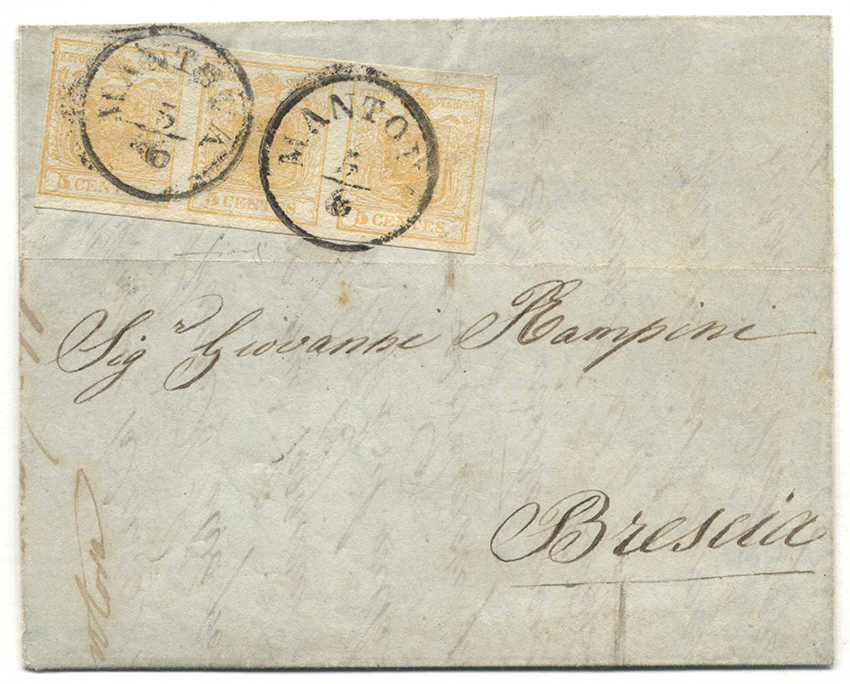 MANTOVA
MANTOV
5 CENTES.
5 CENTES.
5 CENTES.
Sig.r Giovanni Rampini
Brescia